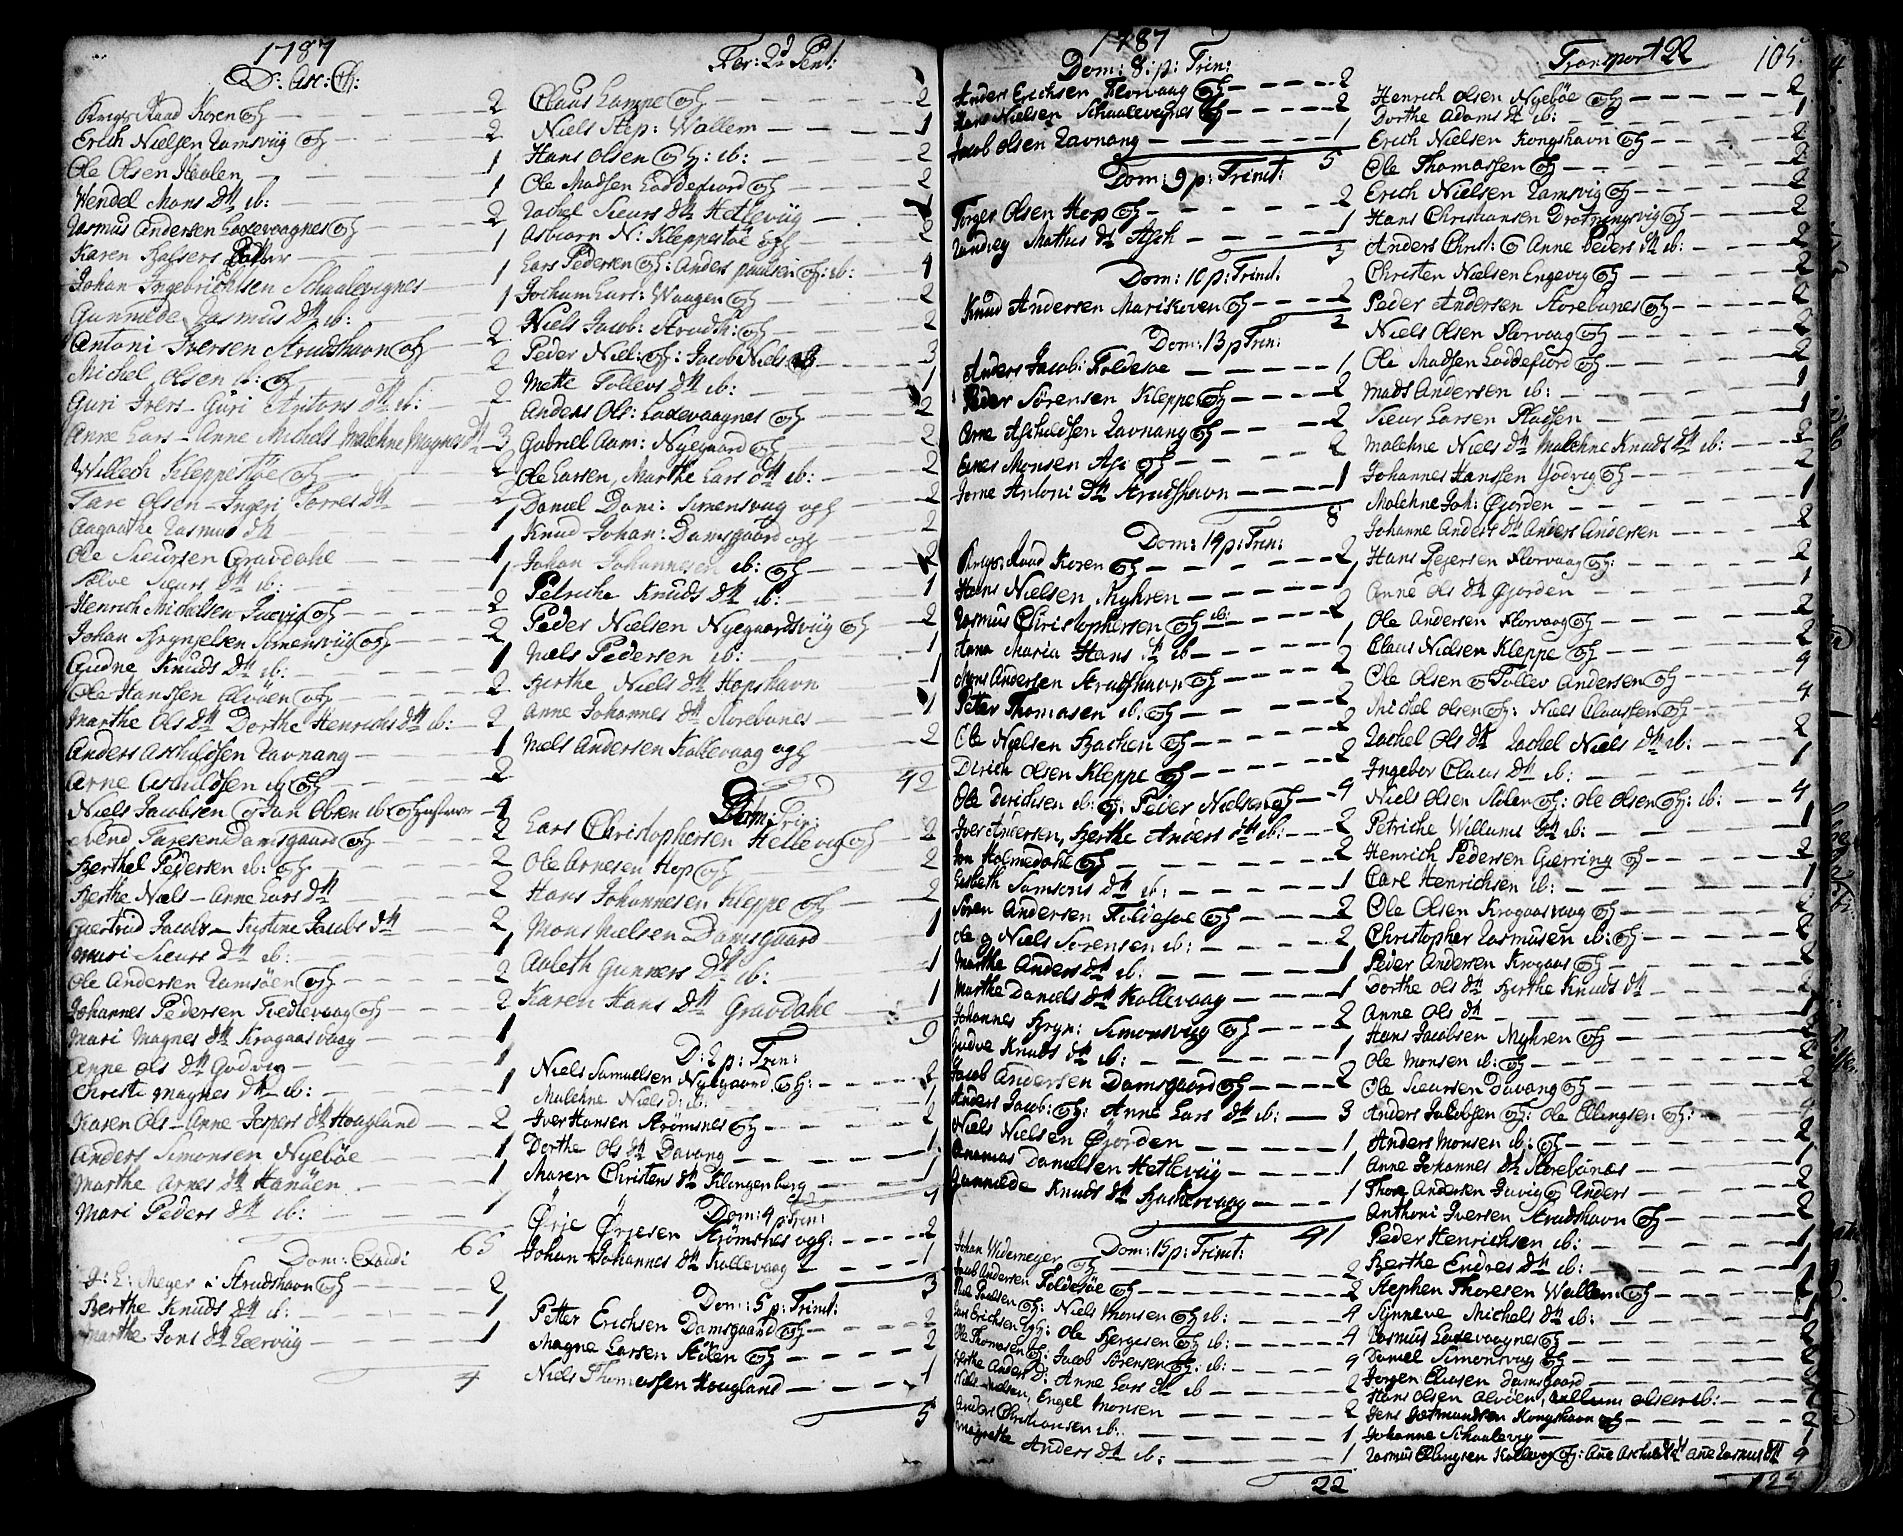 1787
D: Asc: Ch:
Krigs Raad Koren & H 2
Erich Nielsen Ramsviig & H 2
Ole Olsen Haalen 1
Wendel Mons Dtt ib: 1
Rasmus Andersen Laxevaagnes & H 2
Karen Hassers 1
Johan Ingebrichtsen Skaalevignes 1
Gunnilde Rasmus Dtt ib: 1
Antoni Iversen Strudshavn & H 2
Michel Olsen ib: & H 2
Guri Ivers - Guri Antons Dtt ib: 2
Anne Lars - Anne Michels Malehne Magnes Dtt 3
Willech Kleppestøe & H 2
Tare Olsen - Ingeri Torres Dtt 2
Aagaathe Rasmus Dtt 1
Ole Sieursen Gravdahl 1
Sølve Sieurs Dtt ib: 1
Henrich Michelsen Juvig & H 2
Johan Brynjelsen Simensviig & H 2
Gudne Knuds Dtt ib: 1
Ole Hanssen Alvøen & H 2
Marthe Ols Dtt Dorthe Henrichs Dtt ib: 2
Anders Askildsen Ravnang 1
Arne Askildsen ib & H 2
Niels Jacobsen & Jan Olsen ib & H 4
Endre Taresen Damsgaard & H 2
Berthel Pedersen ib: & H 2
Berthe Niels - Anne Lars Dtt 2
Giertrud Jacobs - Kirstine Jacobs Dtt 2
Mari Sieurs Dtt ib: 1
Ole Andersen Ramsøen & H 2
Johannes Pedersen Tiedlevaag & H 2
Mari Magnes Dtt Kragaasvaag 1
Anne Ols Dtt Godvig 1
Christi Magnes Dtt ib: 1
Karen Ols - Anne Jespers Dtt Hougland 2
Anders Simonsen Nyebøe 1
Marthe Arnes Dtt Hanøen 1
Mari Peders Dtt ib: 1
65
Dom: Exaudi
J: E: Meyer i Strudshavn & H 2
Berthe Knuds Dtt ib: 1
Marthe Jons Dtt Leervig 1
4
Fer: 2d Pent:
Claus Lampe & H 2
Niels Step: Wallem 1
Hans Olsen & H: ib: 2
Ole Madsen Loddefiord & H 2
Rachel Sieurs Dtt Hetleviig 1
Asbiørn N: Kleppestøe & H 2
Lars Pedersen & H: Anders Paulsen & H: ib: 4
Jochum Lars: Waagen & H 2
Niels Jacob: Strudsh: & H 2
Peder Niel: & H: Jacob Niels: ib 3
Mette Tollevs Dtt ib: 1
Anders Ols: Laxevaagnes & H 2
Gabriel Aam: Nyegaard & H 2
Ole Larsen, Marthe Lars Dtt ib: 2
Daniel Dani: Simensvag & H 2
Knud Johan: Damsgaard & H 2
Johan Johannesen ib: & H 2
Petriche Knuds Dtt ib: 1
Peder Nielsen Nyegaardsviig & H 2
Niels Pedersen ib: 1
Berthe Niels Dtt Hopshavn 1
Anne Johannes Dtt Storebunes 1
Niels Andersen Kallevaag & H 2
42
Dom: Trin:
Lars Christophersen Hetlevig & H 2
Ole Arnesen Hop & H 2
Hans Johannesen Kleppe & H 2
Mons Nielsen Damsgaard 1
Aaleth Gunners Dtt ib: 1
Karen Hans Dtt Gravdahl 1
9
D: 2 p: Trin:
Niels Samuelsen Nyegaard & H: 2
Malehne Niels D: ib: 1
Iver Hansen Strømsnes & H 2
Dorthe Ols Dtt Davang 1
Maren Christens Dtt Klingenberg 1
7
Dom: 4 p: Trin:
Ørje Ørjesen Strømsnes & H: 2
Johan Johannes Dtt Kallevaag 1
3
Dom: 5 p: Trinit:
Petter Erichsen Damsgaard & H 2
Magne Larsen Stølen & H 2
Niels Thomassen Hougland 1
5
1787
Dom: 8: p: Trin:
Anders Erichsen Florvaag & H 2
Hans Nielsen Skaalevignes & H 2
Jacob Olsen Ravnang 1
5
Dom: 9 p: Trinit:
Torger Olsen Hop & H 2
Randvey Mathis Dtt Ask 1
3
Dom: 10 p: Trinit:
Knud Andersen Marikoven & H 2
2
Dom: 13 p Trin:
Anders Jacob: Foldesøe 1
Peder Sørensen Kleppe & H 2
Arne Askildsen Ravnang & H 2
Einer Monsen Ask & H 2
Jorne Antoni Dtt Strudshavn 1
8
Dom: 14 p: Trin:
Krigs: Raad Koren & H 2
Hans Nielsen Myhren 1
Rasmus Christophersen & H ib: 2
Anna Maria Hans Dtt ib 1
Mons Andersen Strudshavn & H 2
Peter Thomasen ib: & H 2
Ole Nielsen Backen & H 2
Dirich Olsen Kleppe & H 2
Ole Dirichsen ib: & H: Peder Nielsen & H 4
Iver Andersen, Berthe Anders Dtt ib: 2
Jon Holmedahl & H 2
Lisbeth Samsons Dtt ib: 1
Søren Andersen Foldesøe & H 2
Ole & Niels Sørensen ib: 2
Marthe Anders Dtt ib: 1
Marthe Daniels Dtt Kallevaag 1
Johannes Bryn: Simonsviig & H 2
Gudve Knuds Dtt ib: 1
Jacob Andersen Damsgaard & H 2
Anders Jacob: & H: Anne Lars Dtt ib: 3
Niels Nielsen Giorden 1
Ananias Danielsen Hetleviig 1
Gunnilde Knuds Dtt Backevaag 1
41
Dom: 15 p: Trinit:
Johan Widemeyer & H 2
Jacob Andersen Foldesøe & H 2
Niels Poulsen & H: Niels Monsen & H ib: 4
Lars Erichsen & H: Ole Børgesen & H ib: 4
Ole Thomasen & H: Jacob Sørensen & H: ib: 4
Berthe Anders D: Anne Lars Dtt ib 2
Niels Nielsen, Engel Monsen 2
Anders Christiansen ib: 1
Magrethe Anders Dtt ib: 1
22
Transport 22
105.
Henrich Olsen Nyebøe & H 2
Dorthe Adams Dtt ib: 1
Erich Nielsen Kongshavn & H 2
Ole Thomassen & H 2
Erich Nielsen Ramsvig & H 2
Hans Christiansen Drotningsvig & H 2
Anders Christ: & Anne Peders Dtt ib: 2
Christen Nielsen Engevig & H 2
Peder Andersen Storebunes & H 2
Niels Olsen Florvaag & H 2
Ole Madsen Loddefiord & H 2
Mads Andersen ib: 1
Sieur Larsen Stadsen 1
Malehne Niels Dtt Malehne Knuds Dtt ib: 2
Johannes Hanssen Godvig & H 2
Malehne Joh: Giorden 1
Johanne Anders Dtt Anders Andersen 2
Hans Pedersen Florvaag & H: 2
Anne Ols Dtt Giorden 1
Ole Andersen Florvaag & H 2
Claus Nielsen Kleppe & H 2
Ole Olsen & Tollev Andersen & H 4
Michel Olsen & H: Niels Claussen & H 4
Rachel Ols Dtt Rachel Niels Dtt ib: 2
Ingebor Claus Dtt ib: 1
Niels Olsen Stølen & H: Ole Olsen & H: ib: 4
Petriche Willums Dtt ib: 1
Henrich Pedersen Giærring & H 2
Carl Henrichsen ib: 1
Ole Olsen Kragaasvaag & H 2
Christopher Rasmusen ib: & H 2
Peder Andersen Kragaas & H 2
Dorthe Ols Dtt Berthe Knuds Dtt 2
Anne Ols Dtt 1
Hans Jacobsen Myhren & H 2
Ole Monsen ib: & H 2
Ole Sieursen Davang & H 2
Anders Jacobsen & H: Ole Ellingsen & H: 4
Anders Monsen ib: & H 2
Anne Johannes Dtt Storebunes 1
Thore Andersen Juvig & Anders 2
Anthoni Iversen Strudshavn & H 2
Peder Henrichsen ib: 1
Berthe Endres Dtt ib: 1
Stephen Thoresen Wallem & H 2
Synneve Michels Dtt ib: 1
Rasmus Laxevaagnes & H 2
Daniel Simonsvag & H 2
Jørgen Clausen Damsgaard 1
Hans Olsen Alvøen, Callum Olsen ib: 2
Jens Giermundsen Kongshavn & H 2
Johanne Skaalevig 1
Rasmus Ellingsen Kallevag & H: Ane Askilds Dtt Ane Rasmus Dtt 4